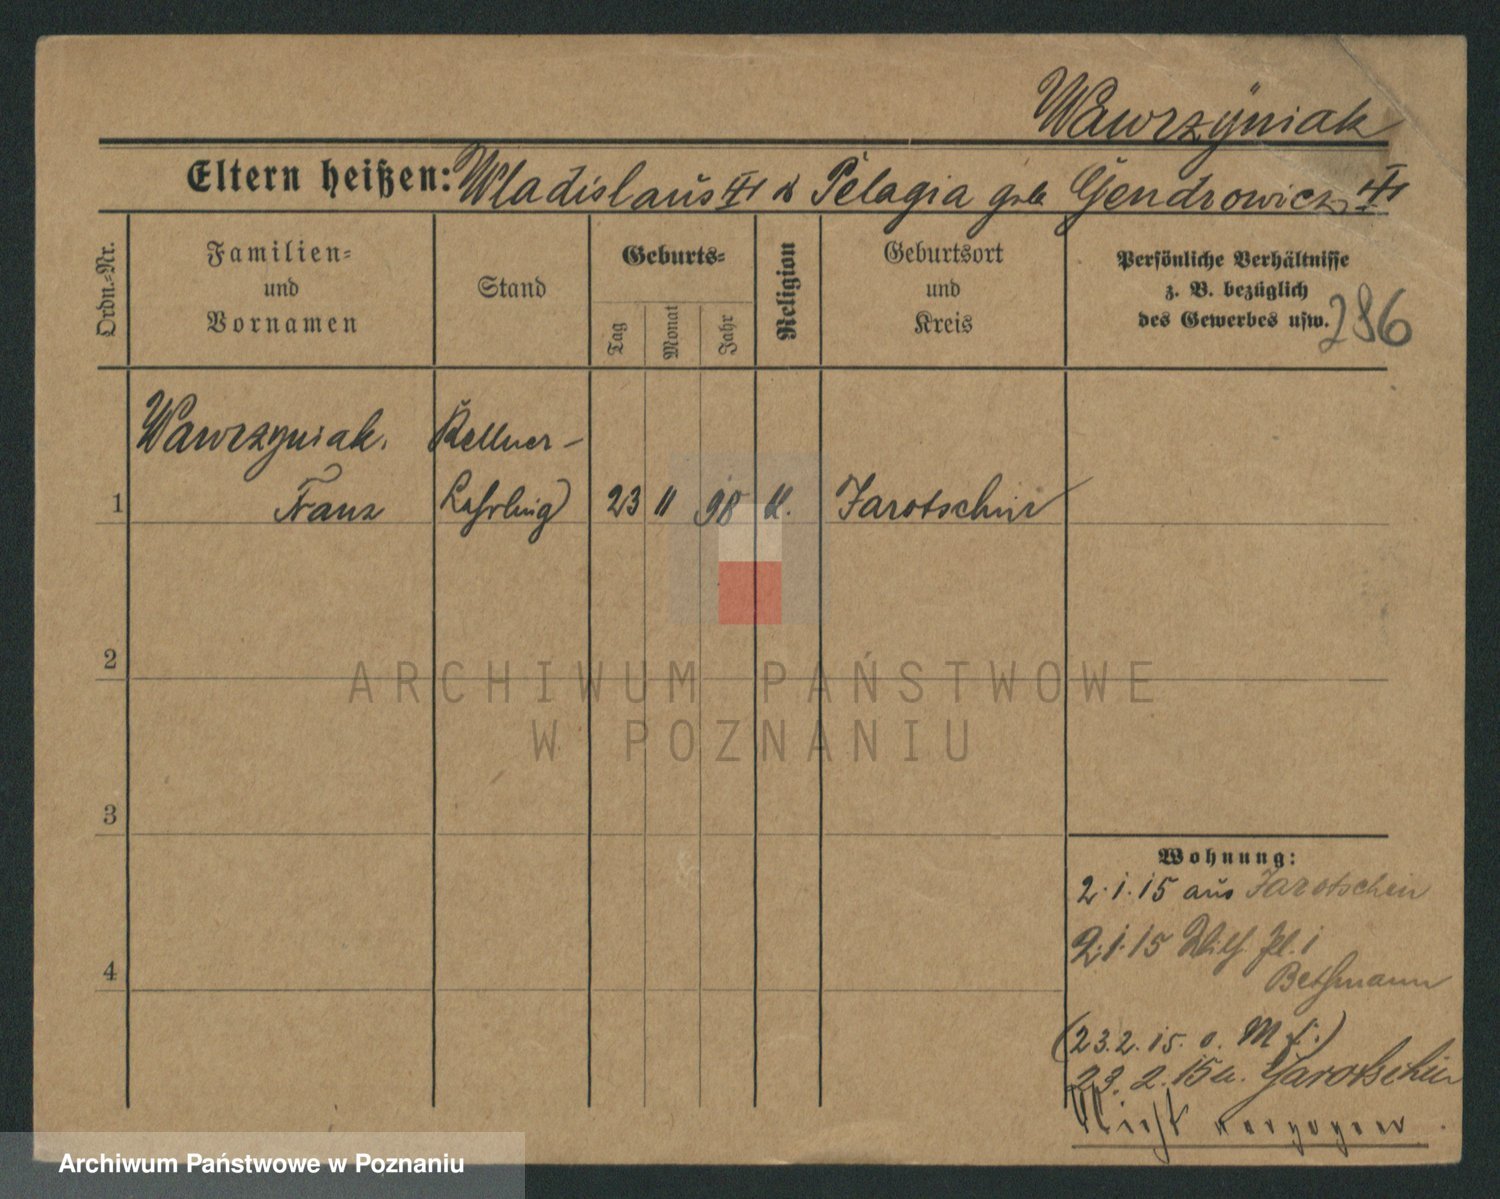 Wawrzyniak
Eltern heißen: Wladislaus & Pelagia geb Gendrowicz
Ordn.-Nr.
Familien-
und
Vornamen
Stand
Geburts-
Tag
Monat
Jahr
Religion
Geburtsort
und
Kreis
Persönliche Verhältnisse
z. B. bezüglich
des Gewerbes usw.
286
1
Wawrzyniak.
Franz
Kellner-
Lehrling
23 11 98 K. Jarotschin
2
3
4
Wohnung:
2.1.15 aus Jarotschin
2.1.15
Bethmann
(23.2.15. o. M
23.2.15 a. Jarotschin
Nicht
ARCHIWUM PAŃSTWOWE
W POZNANIU
Archiwum Państwowe w Poznaniu